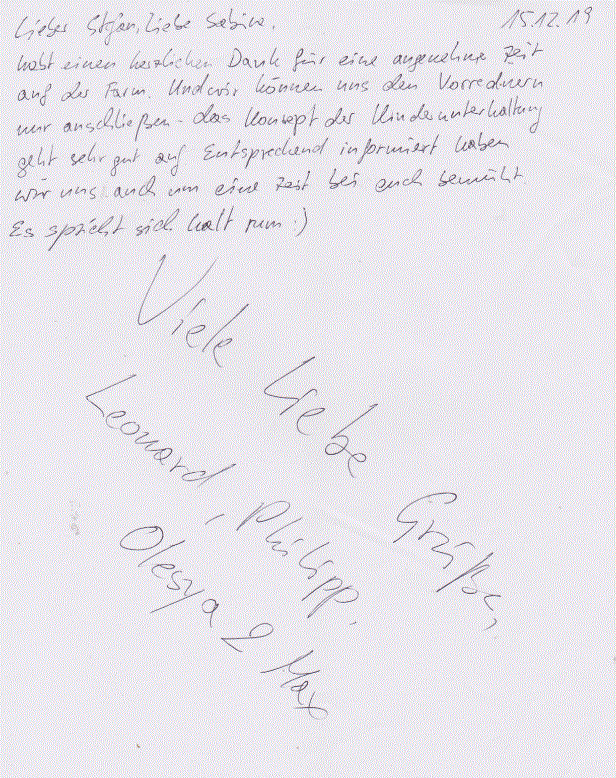 Lieber Stefan, liebe Sabine, 15.12.19
habt einen herzlichen Dank für eine angenehme Zeit
auf der Farm. Und wir können uns den Vorrednern
nur anschließen - das Konzept der Kinderunterhaltung
geht sehr gut auf. Entsprechend informiert haben
wir uns auch um eine Zeit bei euch bemüht
Es spricht sich halt rum :)
Viele liebe Grüße,
Leonard, Philipp,
Olesya & Max